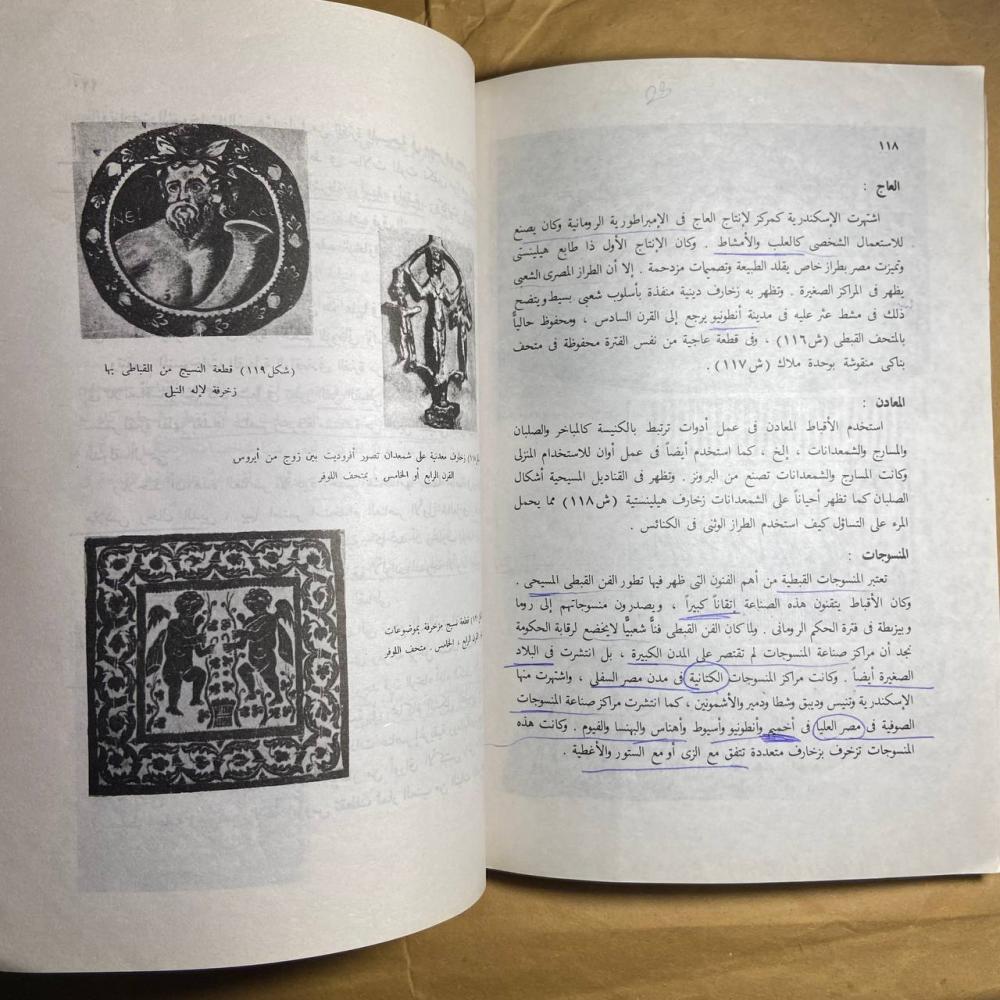 ١١٨
العاج :
اشتهرت الإسكندرية كمركز لإنتاج العاج فى الإمبراطورية الرومانية وكان يصنع
للاستعمال الشخصى كالعلب والأمشاط . وكان الإنتاج الأول ذا طابع هيلينستى
وتميزت مصر بطراز خاص يقلد الطبيعة وتصميمات مزدحمة . إلا أن الطراز المصرى الشعبى
يظهر فى المراكز الصغيرة . وتظهر به زخارف دينية منفذة بأسلوب شعبى بسيط ويتضح
ذلك فى مشط عثر عليه فى مدينة أنطونيو يرجع إلى القرن السادس ، ومحفوظ حالياً
بالمتحف القبطى (ش١١٦) ، وفى قطعة عاجية من نفس الفترة محفوظة فى متحف
بناكى منقوشة بوحدة ملاك (ش١١٧) .
المعادن :
استخدم الأقباط المعادن فى عمل أدوات ترتبط بالكنيسة كالمباخر والصلبان
والمسارج والشمعدانات ، إلخ ، كما استخدم أيضاً فى عمل أوان للاستخدام المنزلى
وكانت المسارج والشمعدانات تصنع من البرونز . وتظهر فى القناديل المسيحية أشكال
الصلبان كما تظهر أحياناً على الشمعدانات زخارف هيلينستية (ش١١٨) مما يحمل
المرء على التساؤل كيف استخدم الطراز الوثنى فى الكنائس .
المنسوجات :
تعتبر المنسوجات القبطية من أهم الفنون التى ظهر فيها تطور الفن القبطى المسيحى .
وكان الأقباط يتقنون هذه الصناعة إتقاناً كبيراً ، ويصدرون منسوجاتهم إلى روما
وبيزنطة فى فترة الحكم الرومانى . ولما كان الفن القبطى فناً شعبياً لايخضع لرقابة الحكومة
نجد أن مراكز صناعة المنسوجات لم تقتصر على المدن الكبيرة ، بل انتشرت فى البلاد
الصغيرة أيضاً . وكانت مراكز المنسوجات الكتانية فى مدن مصر السفلى ، واشتهرت منها
الإسكندرية وتنيس وديبق وشطا ودمير والأشمونين ، كما انتشرت مراكز صناعة المنسوجات
الصوفية فى مصر العليا فى أخميم وأنطونيو وأسيوط وأهناس والبهنسا والفيوم . وكانت هذه
المنسوجات تزخرف بزخارف متعددة تتفق مع الزى أو مع الستور والأغطية .
(شكل١١٩) قطعة النسيج من القباطى بها
زخرفة لإله النيل
زخارف معدنية على شمعدان تصور أفروديت بين زوج من أيروس
القرن الرابع أو الخامس ، بمتحف اللوفر
قطعة نسيج مزخرفة بموضوعات
الرابع ، الخامس . متحف اللوفر